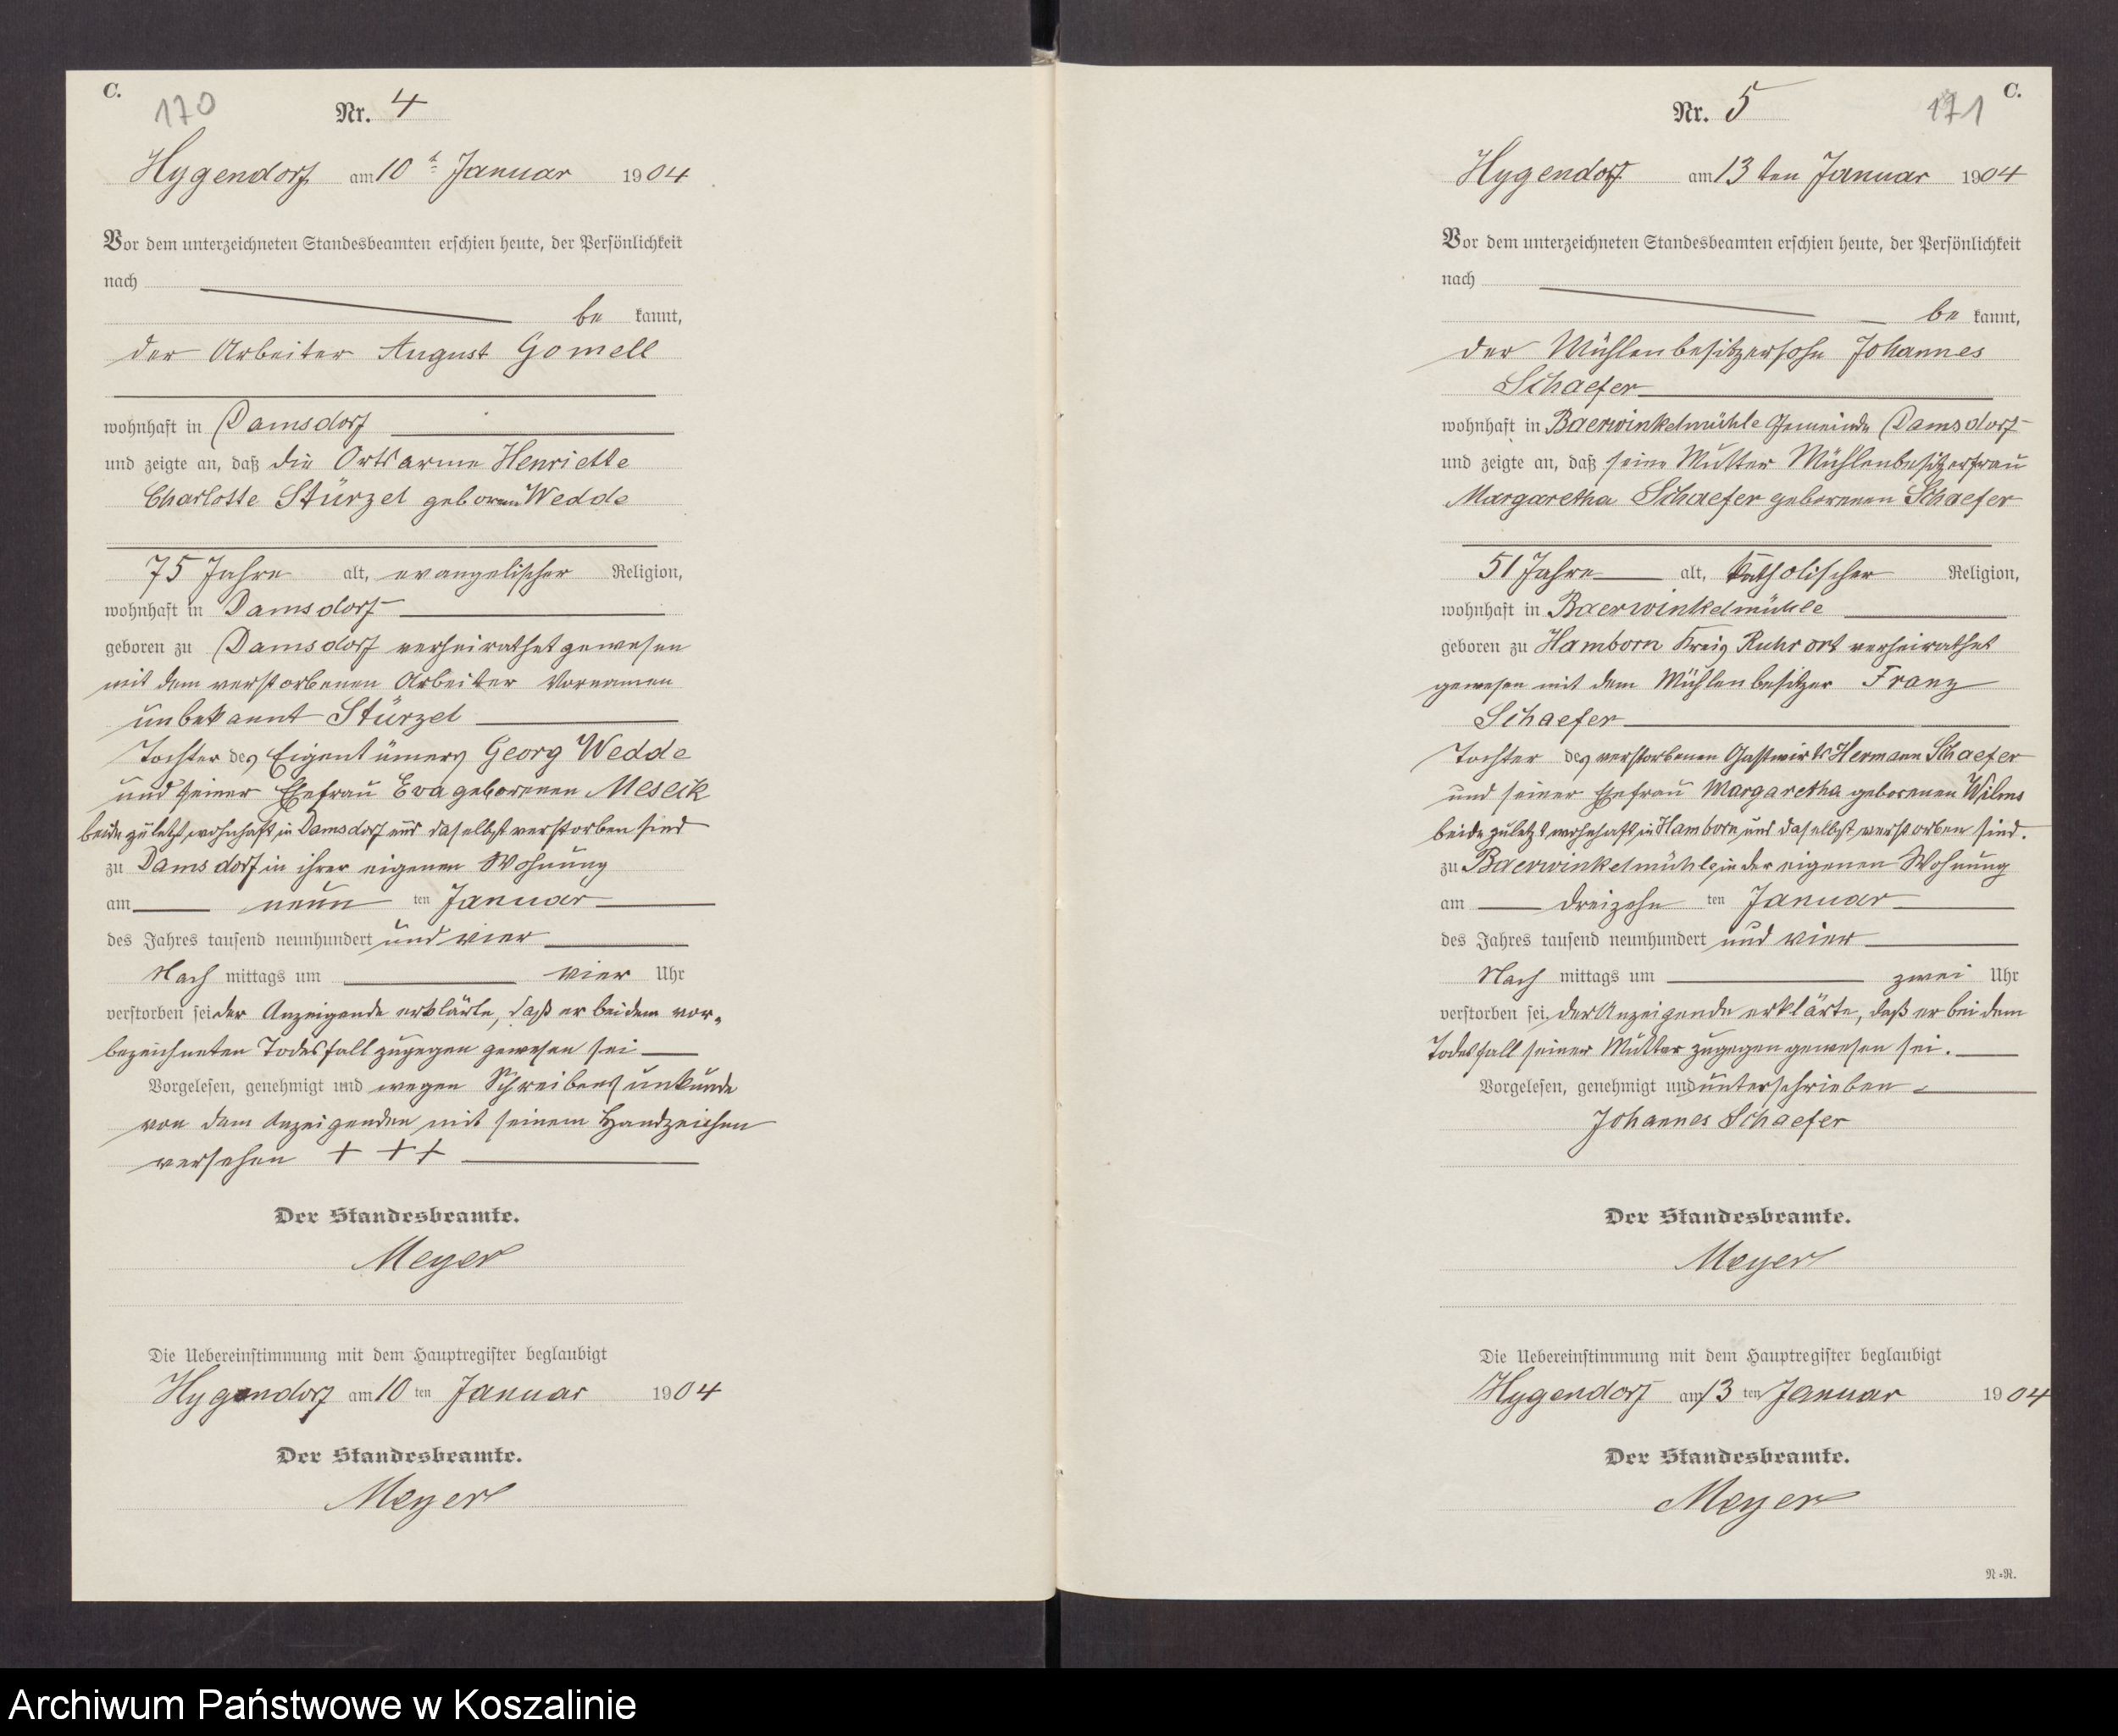 C.
170
Nr. 4
Hygendorf am 10t Januar 1904
Vor dem unterzeichneten Standesbeamten erschien heute, der Persönlichkeit
nach
be kannt,
der Arbeiter August Gomell
wohnhaft in Damsdorf
und zeigte an, daß die Ortsarme Henriette
Charlotte Stürzel geborenen Wedde
75 Jahre alt, evangelischer Religion,
wohnhaft in Damsdorf
geboren zu Damsdorf verheirathet gewesen
mit dem verstorbenen Arbeiter Vornamen
unbekannt Stürzel
Tochter des Eigentümers Georg Wedde
und seiner Ehefrau Eva geborenen Meseik
beide zuletzt wohnhaft in Damsdorf und daselbst verstorben sind
zu Damsdorf in ihrer eigenen Wohnung
am neun ten Januar
des Jahres tausend neunhundert und vier
Nach mittags um vier Uhr
verstorben sei der Anzeigende erklärte, daß er bei dem vor-
bezeichneten Todesfall zugegen gewesen sei
Vorgelesen, genehmigt und wegen Schreibensunkunde
von dem Anzeigenden mit seinem Handzeichen
versehen + + +
Der Standesbeamte.
Meyer
Die Uebereinstimmung mit dem Hauptregister beglaubigt
Hygendorf am 10 ten Januar 1904
Der Standesbeamte.
Meyer
C.
171
Nr. 5
Hygendorf am 13 ten Januar 1904
Vor dem unterzeichneten Standesbeamten erschien heute, der Persönlichkeit
nach
be kannt,
der Mühlenbesitzersohn Johannes
Schaefer
wohnhaft in Baerwinkelmühle Gemeinde Damsdorf
und zeigte an, daß seine Mutter Mühlenbesitzerfrau
Margaretha Schaefer geborenen Schaefer
51 Jahre alt, katholischer Religion,
wohnhaft in Baerwinkelmühle
geboren zu Hamborn Kreis Ruhrort verheirathet
gewesen mit dem Mühlenbesitzer Franz
Schaefer
Tochter des verstorbenen Gastwirts Hermann Schaefer
und seiner Ehefrau Margaretha geborenen Wilms
beide zuletzt wohnhaft in Hamborn und daselbst verstorben sind.
zu Baerwinkelmühle, in der eigenen Wohnung
am dreizehn ten Januar
des Jahres tausend neunhundert und vier
Nach mittags um zwei Uhr
verstorben sei, der Anzeigende erklärte, daß er bei dem
Todesfall seiner Mutter zugegen gewesen sei.
Vorgelesen, genehmigt und unterschrieben
Johannes Schaefer
Der Standesbeamte.
Meyer
Die Uebereinstimmung mit dem Hauptregister beglaubigt
Hygendorf am 13 ten Januar 1904
Der Standesbeamte.
Meyer
N=R.
Archiwum Państwowe w Koszalinie